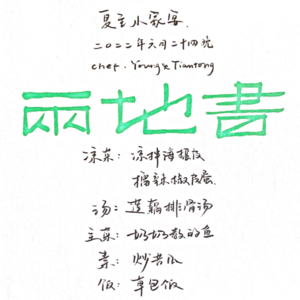 夏至小家宴
二〇二二年六月二十四號
chef. Young & Tiantong
兩地書
凉菜: 凉拌海根皮
擂辣椒皮蛋
汤: 莲藕排骨汤
主菜: 奶奶教的鱼
素: 炒苦瓜
饭: 草包饭